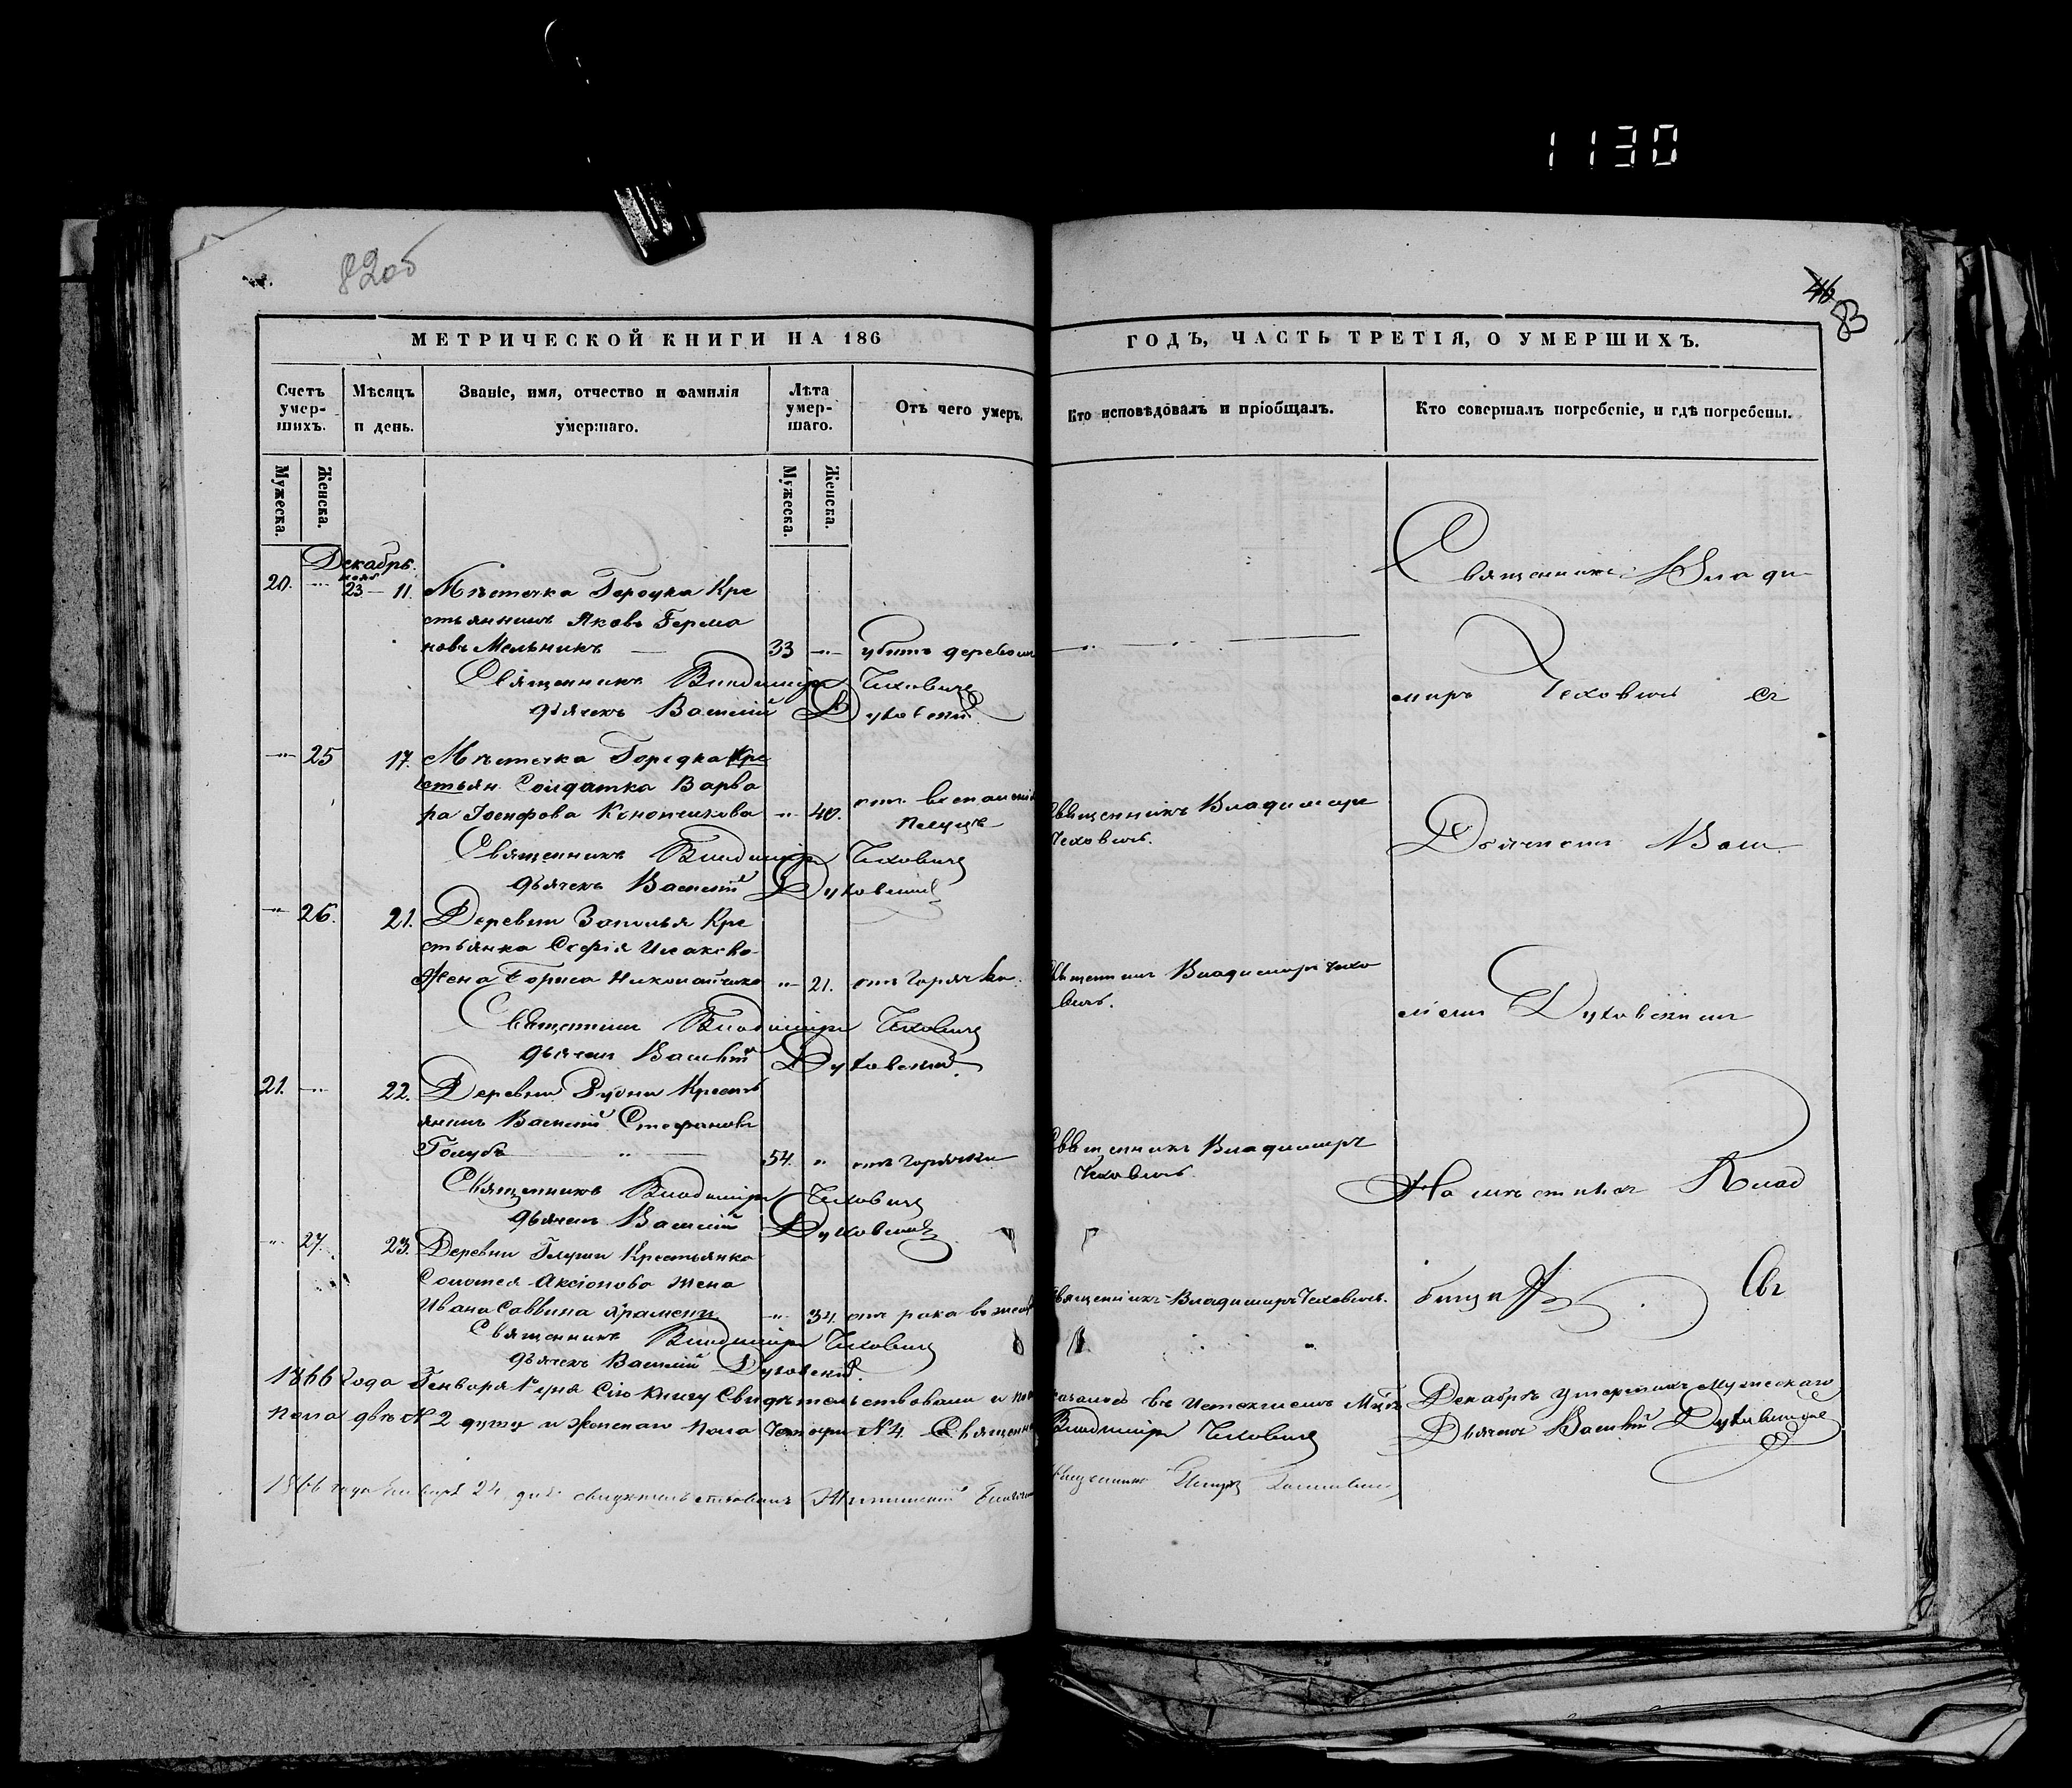 1130
82об
46
83
МЕТРИЧЕСКОЙ КНИГИ НА 186
ГОДЪ, ЧАСТЬ ТРЕТІЯ, О УМЕРШИХЪ.
Счетъ умер-шихъ.
Мѣсяцъ и день.
Званіе, имя, отчество и фамилія умершаго.
Лѣта умер-шаго.
Отъ чего умеръ.
Кто исповѣдовалъ и пріобщалъ.
Кто совершалъ погребеніе, и гдѣ погребены.
Мужеска.
Женска.
Мужеска.
Женска.
Декабрь.
20. 23 — 11. Мѣстечка Городка Кре
стьянинъ Яковъ Герма
новъ Мельникъ — 33 убитъ деревомъ
Священникъ Владиміръ Чеховичъ
дьячекъ Василій Духовскій
25 17. Мѣстечка Городка Кре
стьян. Солдатка Варва
ра Іосифова 40.
Священникъ Владиміръ Чеховичъ
Священникъ Владиміръ Чеховичъ
дьячекъ Василій Духовскій
26. 21. Деревни Заполья Кре
стьянка Софія Исакова
Жена Бориса Николайчика 21. отъ горячки.
Священникъ Владиміръ Чеховичъ.
Священникъ Владиміръ Чеховичъ
дьячекъ Василій Духовскій
21. 22. Деревни Рудни Кресть
янинъ Василій Стефановъ
Голубъ 54. отъ горячки
Священникъ Владиміръ Чеховичъ
Священникъ Владиміръ Чеховичъ
дьячекъ Василій Духовскій
27. 23. Деревни Глуши Крестьянка
Соломея Аксіонова жена
Ивана Саввина 34. отъ рака въ
Священникъ Владиміръ Чеховичъ.
Священникъ Владиміръ Чеховичъ
дьячекъ Василій Духовскій.
Священникъ Влади
миръ Чеховичъ съ
Дьячкомъ Васи
ліемъ Духовскимъ
На мѣстномъ Клад
бищѣ
1866 Года Генваря 1 дня Сію Книгу Свидѣтельствовали и въ Истекшемъ Декабрѣ Умершихъ Мужескаго
пола двѣ № 2 души и Женскаго пола Четыре № 4 Священникъ Владиміръ Чеховичъ Дьячекъ Василій Духовскій
1866 года Января 24 дня свидѣтельствовалъ Священникъ